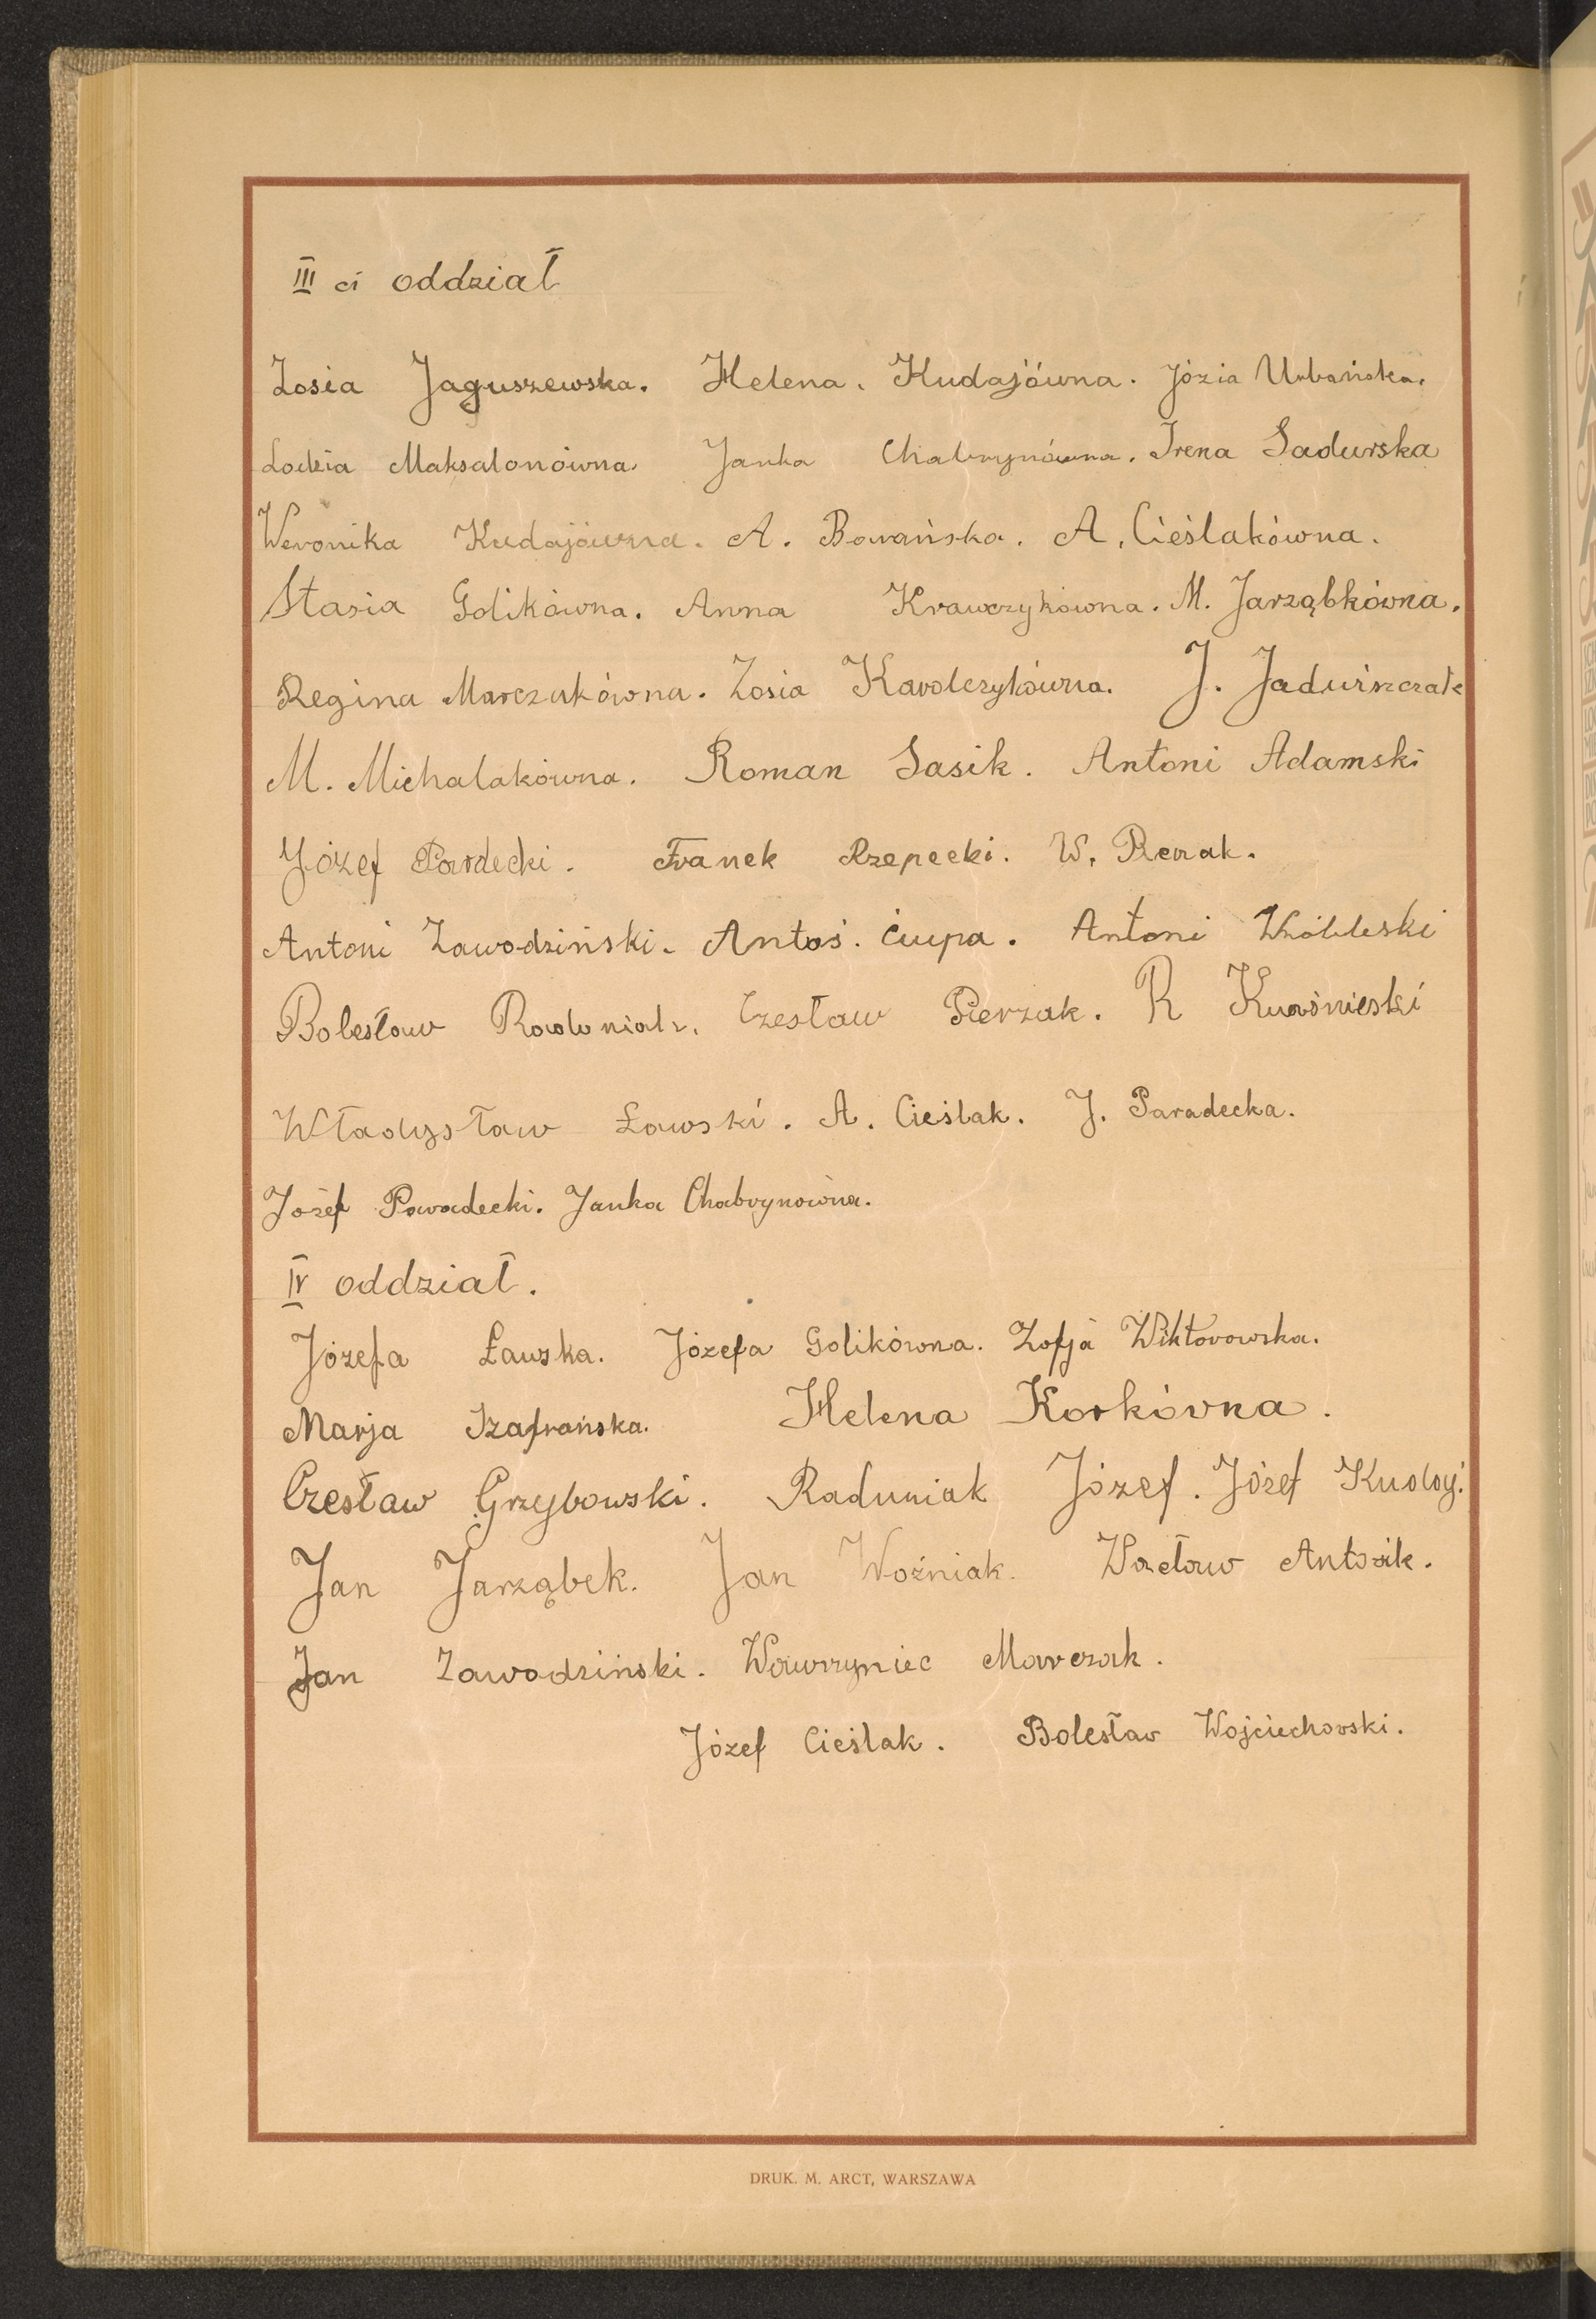 III ci oddział
Zosia Jaguszewska. Helena. Kudajówna. Józia Urbańska.
Lodzia Maksalonówna Janka Chabrynówna. Irena Sadurska
Weronika Kudajówna. A. Barańska. A. Cieślakówna.
Stasia Golikówna. Anna Krawczykówna. M. Jarząbkówna.
Regina Marczukówna. Zosia Karolczykówna. J.
M. Michalakówna. Roman Sasik. Antoni Adamski
Józef Pardecki. Franek Rzepecki. W. Rerak.
Antoni Zawodziński. Antoś. Ciupa. Antoni
Bolesław Czesław Pierzak. R Kuaśnieski
Władysław Ławski. A. Cieślak. J. Paradecka.
Józef Paradecki. Janka Chabrynowna.
IV oddział.
Józefa Ławska. Józefa Golikówna. Zofja Wiktorowska.
Marja Szafrańska. Helena Korkówna.
Czesław Grzybowski. Raduniak Józef. Józef Kudaj.
Jan Jarząbek. Jan Woźniak. Wacław Antosik.
Jan Zawodziński. Wawrzyniec Marczak.
Józef Cieślak. Bolesław Wojciechowski.
DRUK. M. ARCT, WARSZAWA